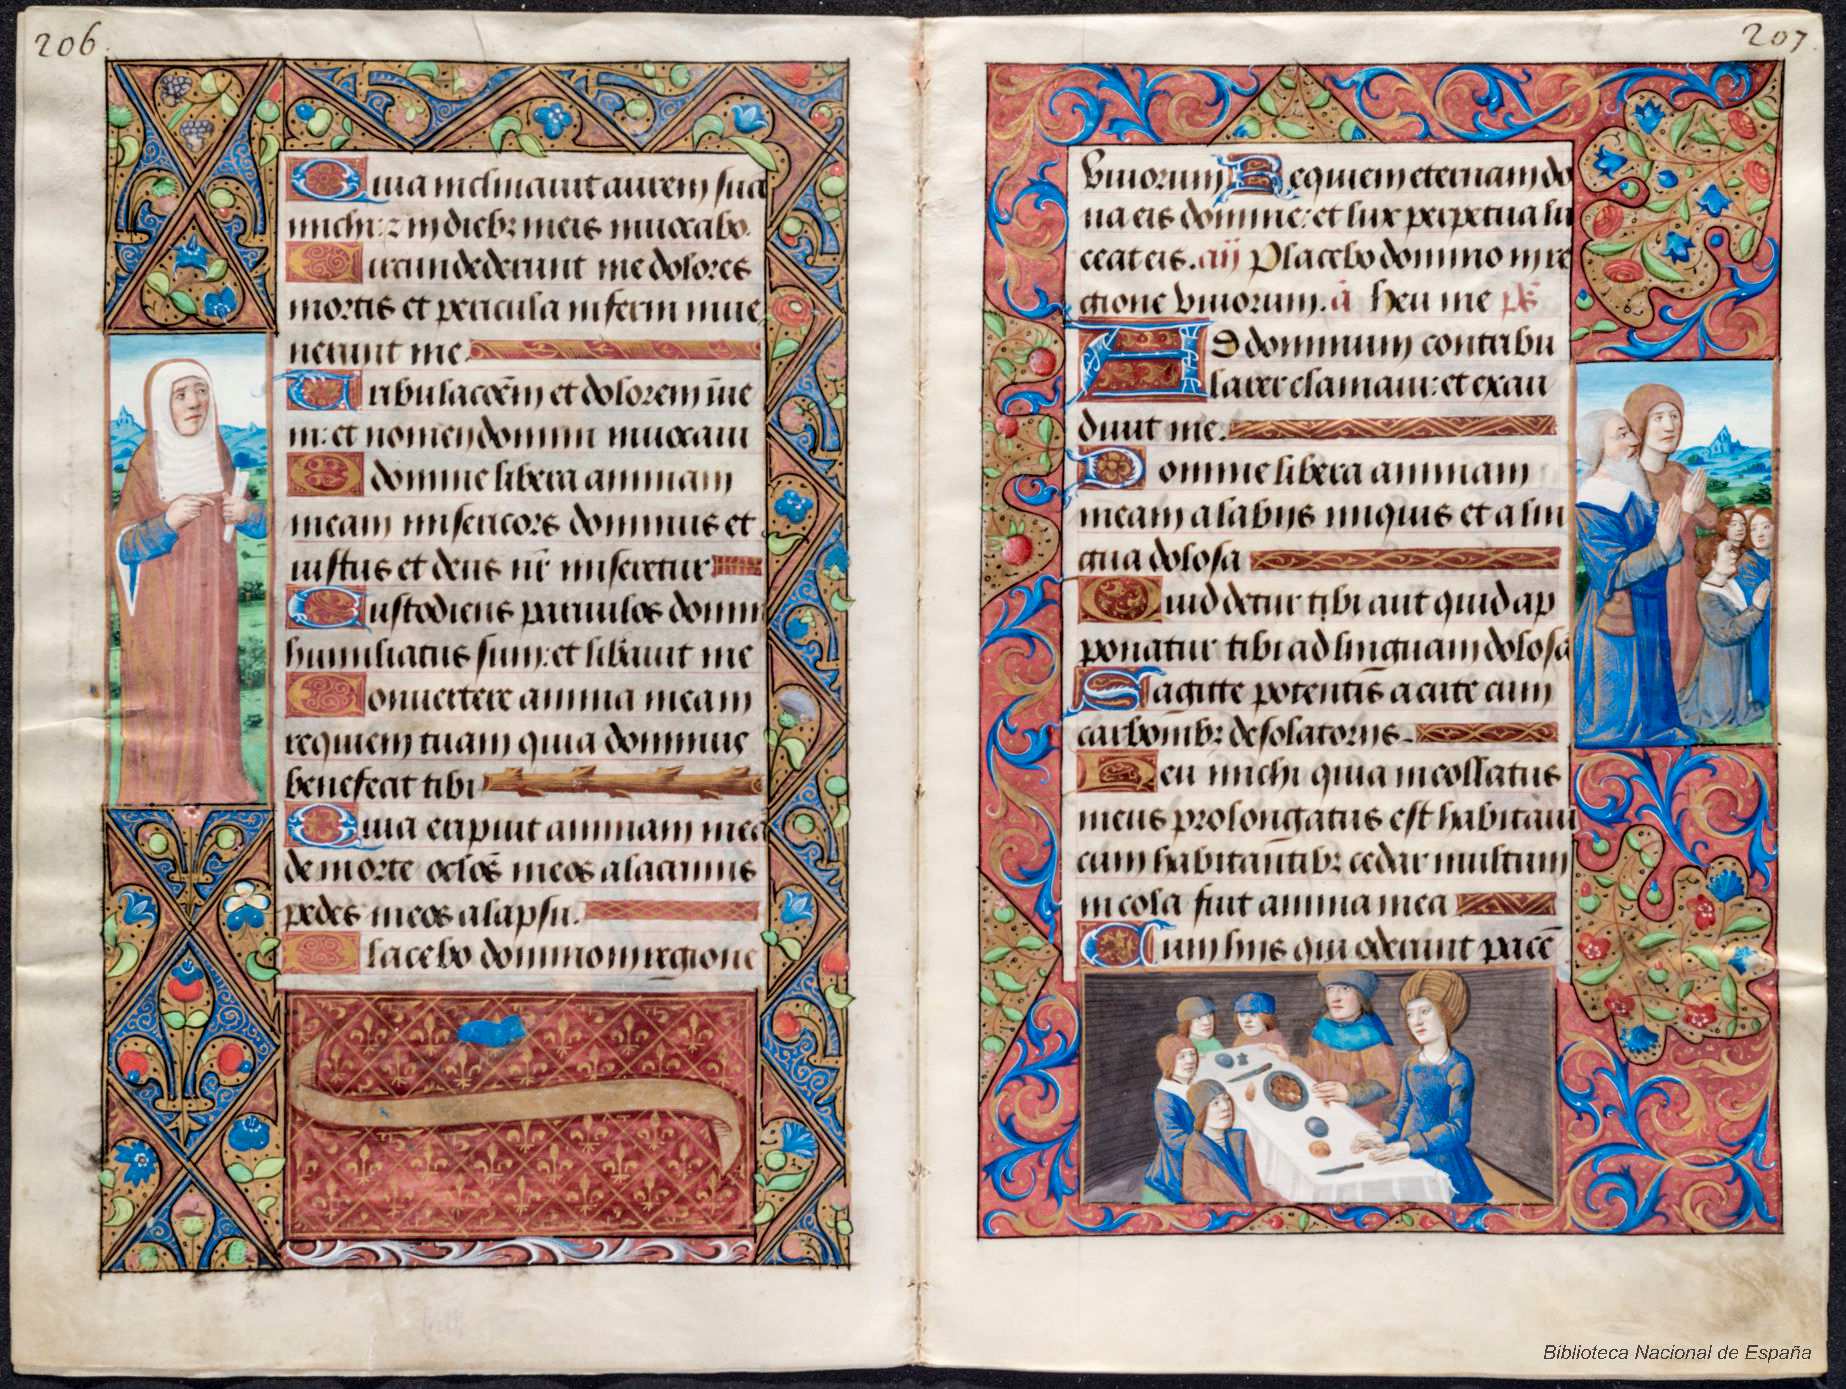 206
Quia inclinavit aurem sua
michi: et in diebꝫ meis invocabo.
Circundederunt me dolores
mortis et pericula inferni inve
nerunt me.
Tribulacoēm et dolorem īve
ni: et nomen domini invocavi
O domine libera animam
meam misericors dominus et
iustus et deus nr̄ miseretur
Custodiens parvulos domin
humiliatus sum: et libāvit me
Convertere anima meam
requiem tuam quia dominus
benefecit tibi
Quia eripuit animam mea
de morte oclōs meos a lacrimis
pedes meos a lapsu.
Placebo domino in regione
207
vivorum Requiem eternam do
na eis domine: et lux perpetua lu
ceat eis. añ Placebo domino in re
gione vivorum. ā Heu me ps̄
AD dominum cum tribu
larer clamavi: et exau
divit me.
Domine libera animam
meam a labiis iniquis et a lin
gua dolosa
Quid detur tibi aut quid ap
ponatur tibi ad linguam dolosā
Sagitte potentis acute cum
carbonibꝫ desolatoriis.
Heu michi quia incollatus
meus prolongatus est habitavi
cum habitantibꝫ cedar multum
incola fuit anima mea
Cum hiis qui oderunt pacē
Biblioteca Nacional de España